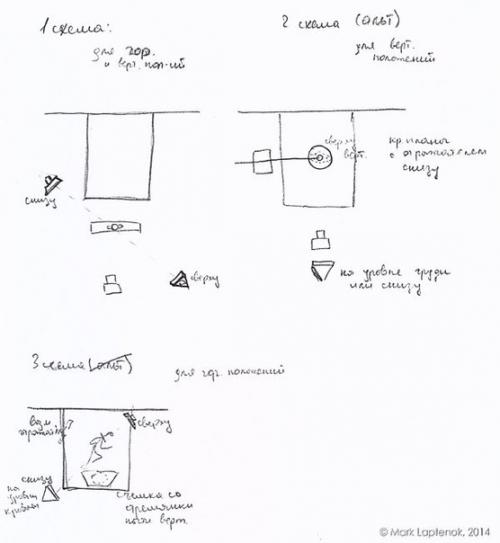 1 схема:
для гор.
и верт. пол-ий
2 схема (альт)
для верт.
положений
снизу
сверху
сверху
верт.
кр. планы
с отражателем
снизу
на уровне груди
или снизу
3 схема (альт)
для гор. положений
возм.
отражатель
сверху
снизу
на уровне
кровати
съемка со
стремянки
почти верт.
© Mark Laptenok, 2014